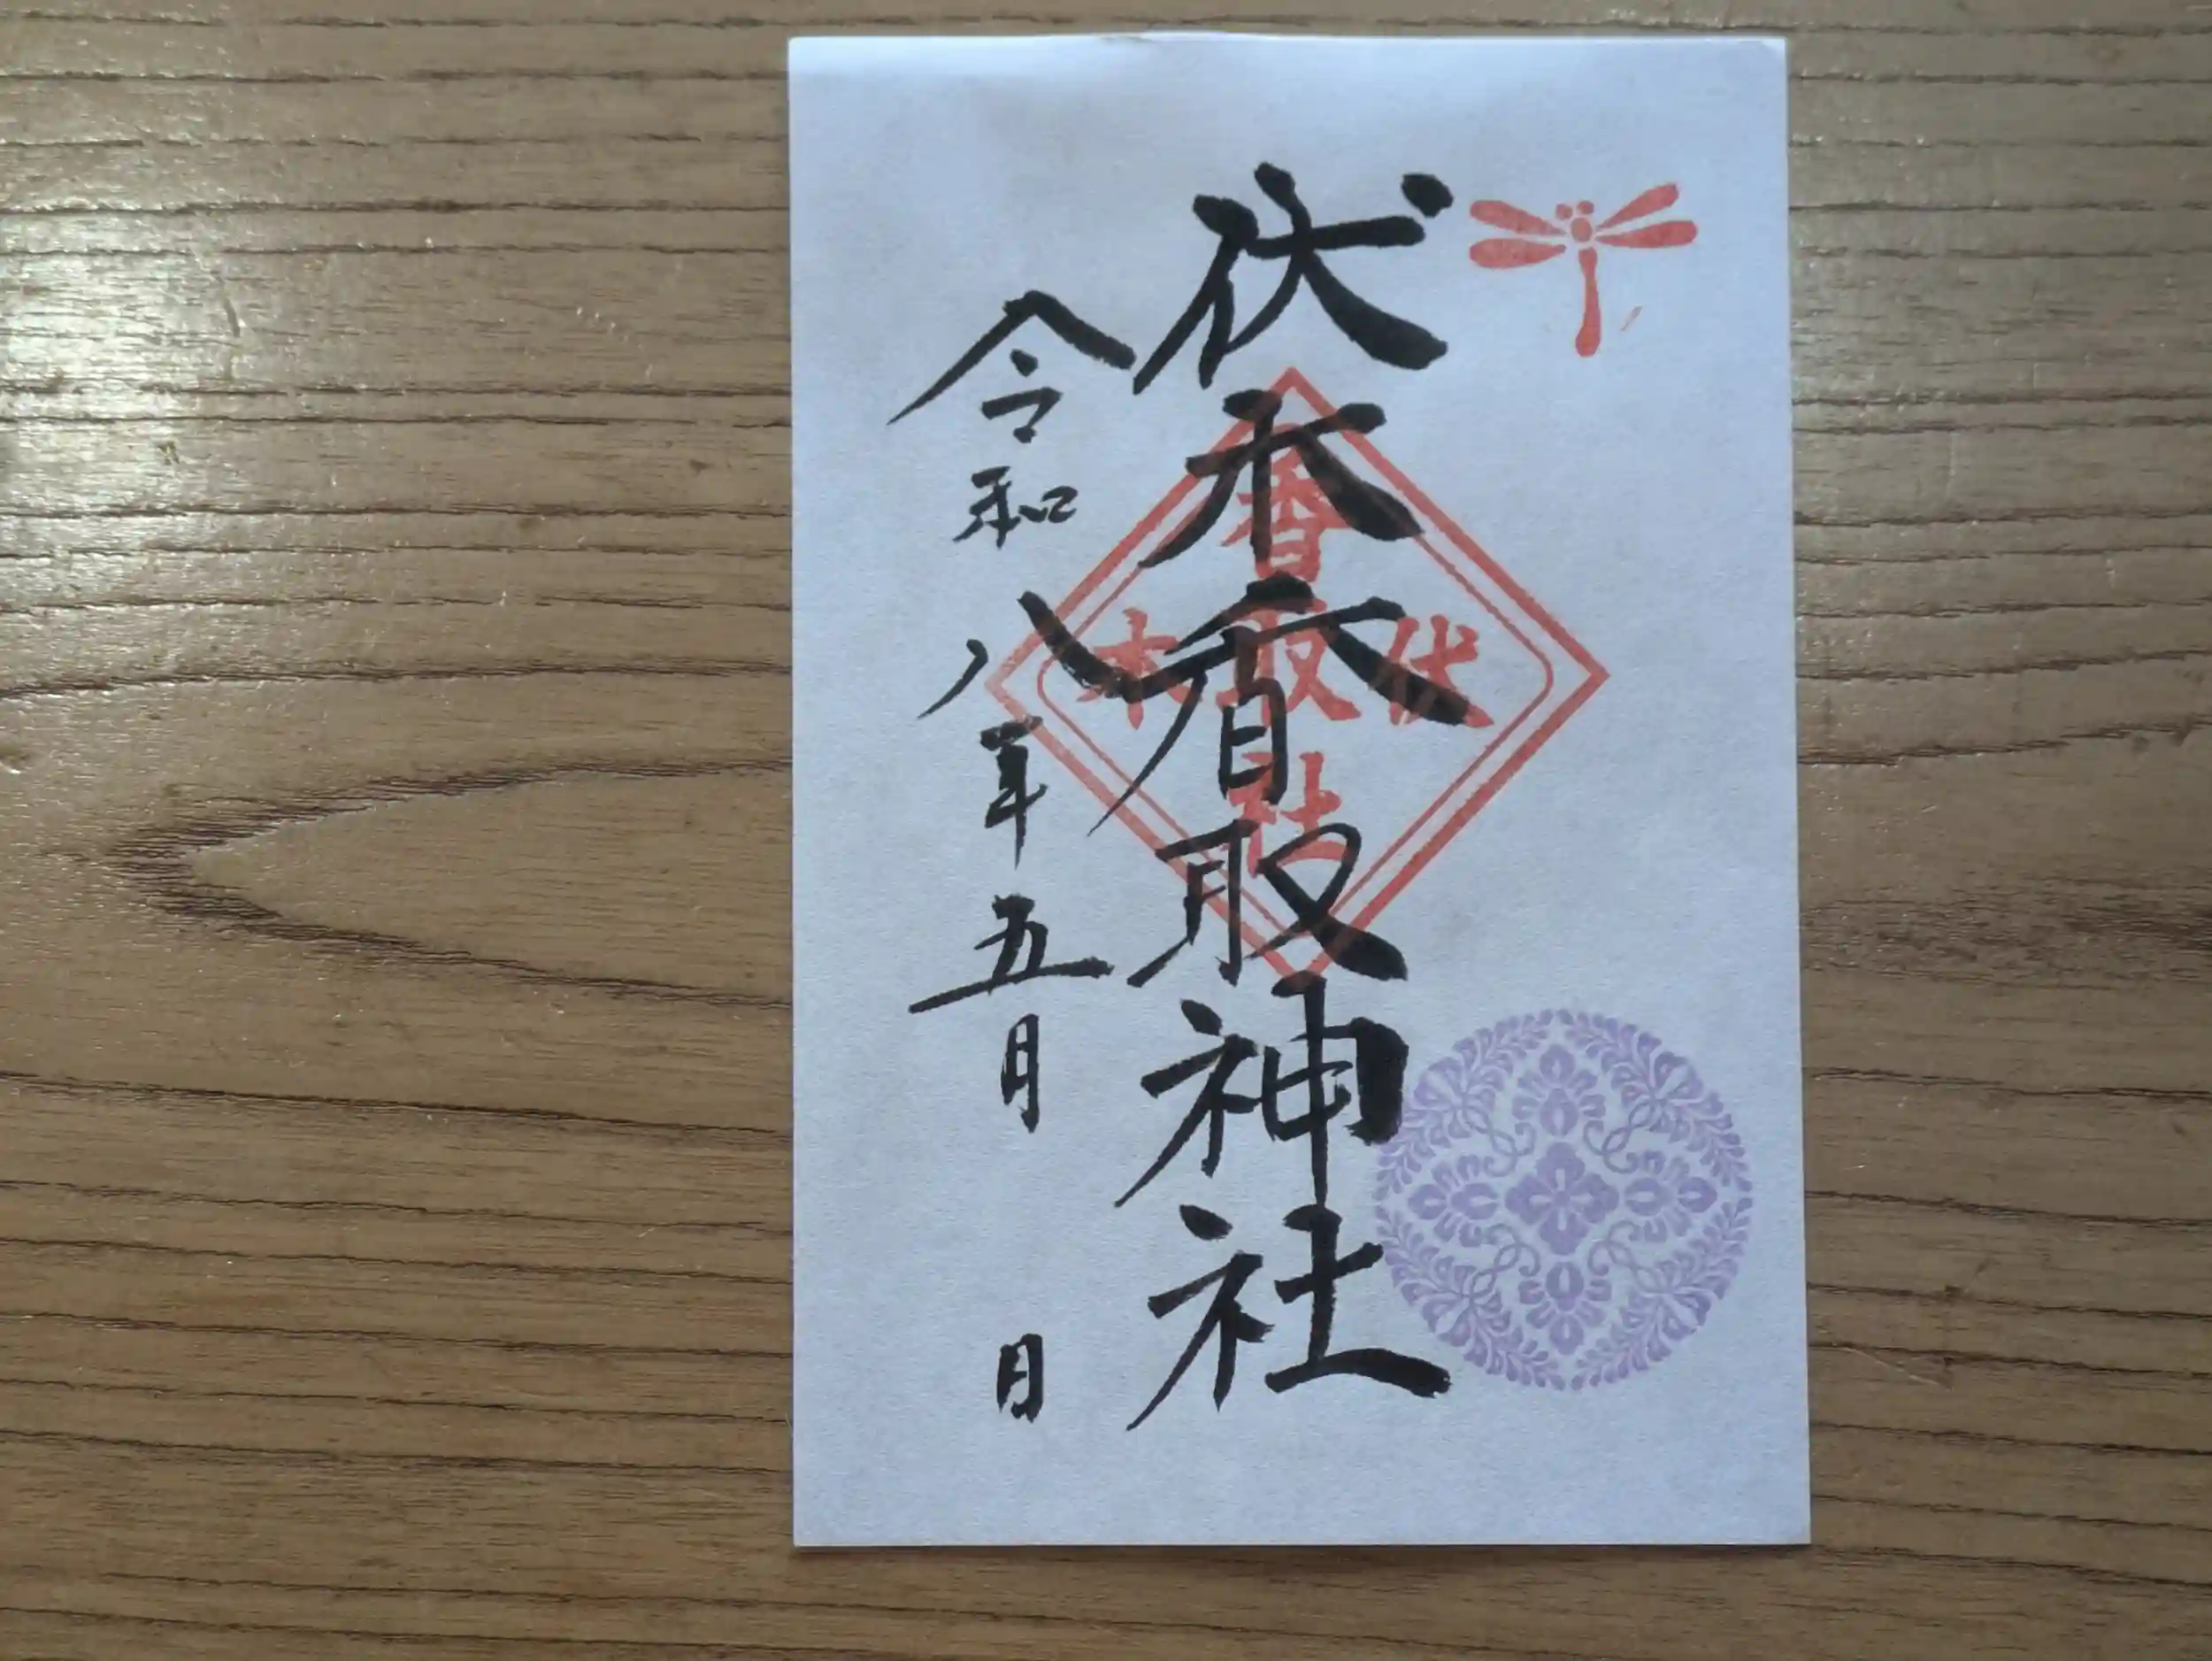 伏木香取神社
令和八年五月 日
香
伏取木
社